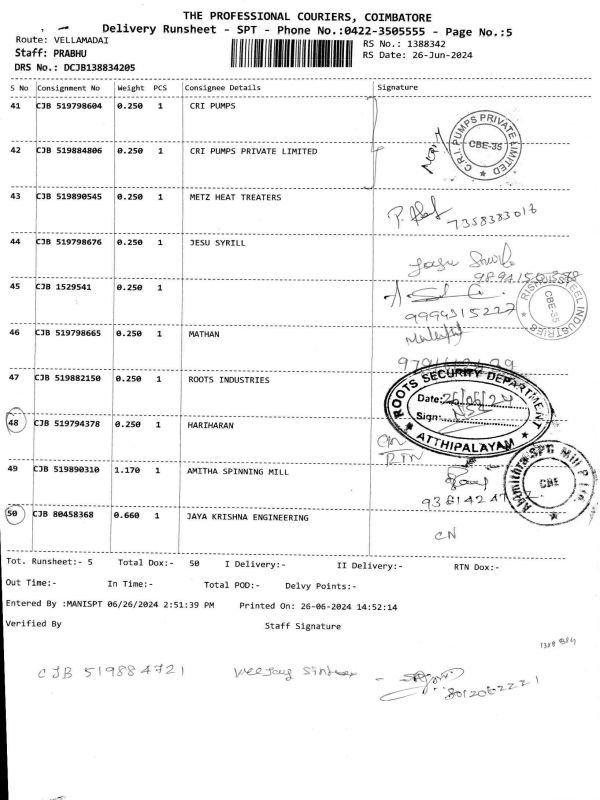 THE PROFESSIONAL COURIERS, COIMBATORE
Delivery Runsheet - SPT - Phone No.:0422-3505555 - Page No.:5
Route: VELLAMADAI RS No.: 1388342
Staff: PRABHU RS Date: 26-Jun-2024
DRS No.: DCJB138834205
S No Consignment No Weight PCS Consignee Details Signature
41 CJB 519798604 0.250 1 CRI PUMPS
C.R.I. PUMPS PRIVATE LIMITED
CBE-35
42 CJB 519884806 0.250 1 CRI PUMPS PRIVATE LIMITED
43 CJB 519890545 0.250 1 METZ HEAT TREATERS
7358383018
44 CJB 519798676 0.250 1 JESU SYRILL
45 CJB 1529541 0.250 1
9994315227
STEEL INDUSTRIES
CBE-35
46 CJB 519798665 0.250 1 MATHAN
47 CJB 519882150 0.250 1 ROOTS INDUSTRIES
ROOTS SECURITY DEPARTMENT
Date: 26/06/24
Sign:
ATTHIPALAYAM
48 CJB 519794378 0.250 1 HARIHARAN
CN
RTN
49 CJB 519890310 1.170 1 AMITHA SPINNING MILL
CBE
50 CJB 80458368 0.660 1 JAYA KRISHNA ENGINEERING
CN
Tot. Runsheet:- 5 Total Dox:- 50 I Delivery:- II Delivery:- RTN Dox:-
Out Time:- In Time:- Total POD:- Delvy Points:-
Entered By :MANISPT 06/26/2024 2:51:39 PM Printed On: 26-06-2024 14:52:14
Verified By Staff Signature
CJB 519884721 - 8012062221